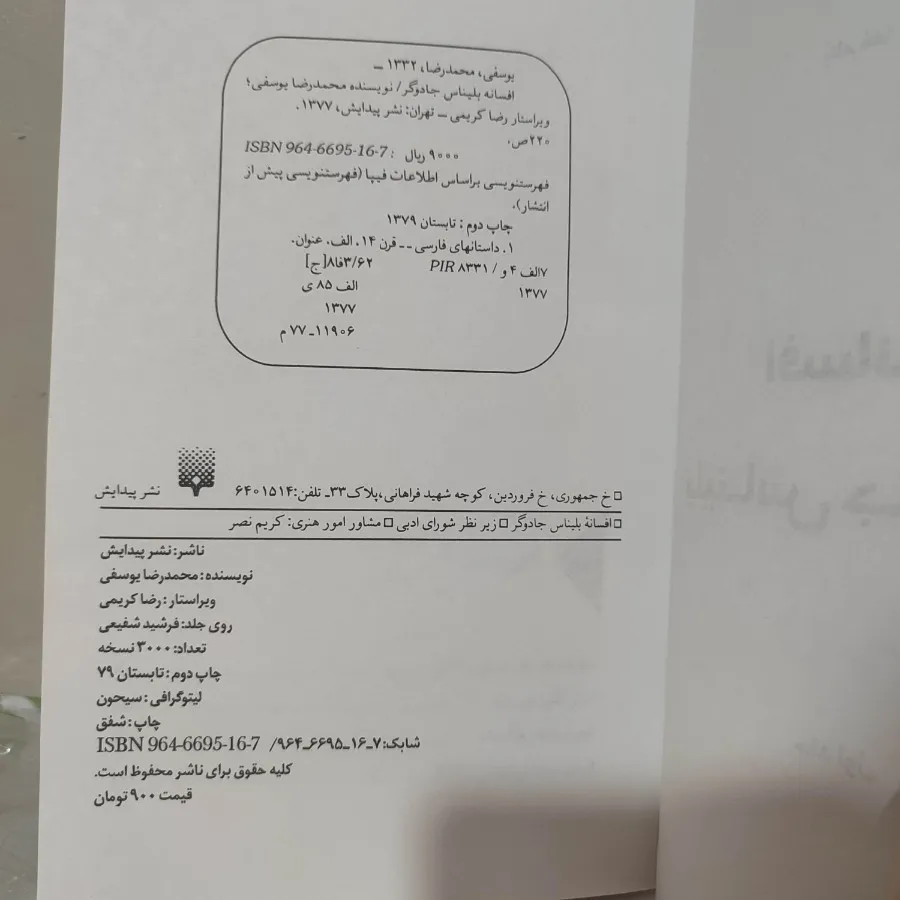 یوسفی، محمدرضا، ۱۳۳۲ ـ
افسانه بلیناس جادوگر/ نویسنده محمدرضا یوسفی؛
ویراستار رضا کریمی ـ تهران: نشر پیدایش، ۱۳۷۷.
۲۲۰ص.
۹۰۰۰ ریال : ISBN 964-6695-16-7
فهرستنویسی براساس اطلاعات فیپا (فهرستنویسی پیش از
انتشار).
چاپ دوم : تابستان ۱۳۷۹
۱. داستانهای فارسی -- قرن ۱۴. الف. عنوان.
۷الف ۴ و / PIR ۸۳۳۱ ۸فا۳/۶۲[ج]
۱۳۷۷ الف ۸۵ ی
۱۳۷۷
۱۱۹۰۶ـ۷۷ م
نشر پیدایش
□ خ جمهوری، خ فروردین، کوچه شهید فراهانی،پلاک۳۳ـ تلفن:۶۴۰۱۵۱۴
□ افسانهٔ بلیناس جادوگر □ زیر نظر شورای ادبی □ مشاور امور هنری: کریم نصر
ناشر: نشر پیدایش
نویسنده: محمدرضا یوسفی
ویراستار: رضا کریمی
روی جلد: فرشید شفیعی
تعداد: ۳۰۰۰ نسخه
چاپ دوم: تابستان ۷۹
لیتوگرافی: سیحون
چاپ: شفق
شابک:۷ـ۱۶ـ۶۶۹۵ـ۹۶۴/ ISBN 964-6695-16-7
کلیه حقوق برای ناشر محفوظ است.
قیمت ۹۰۰ تومان